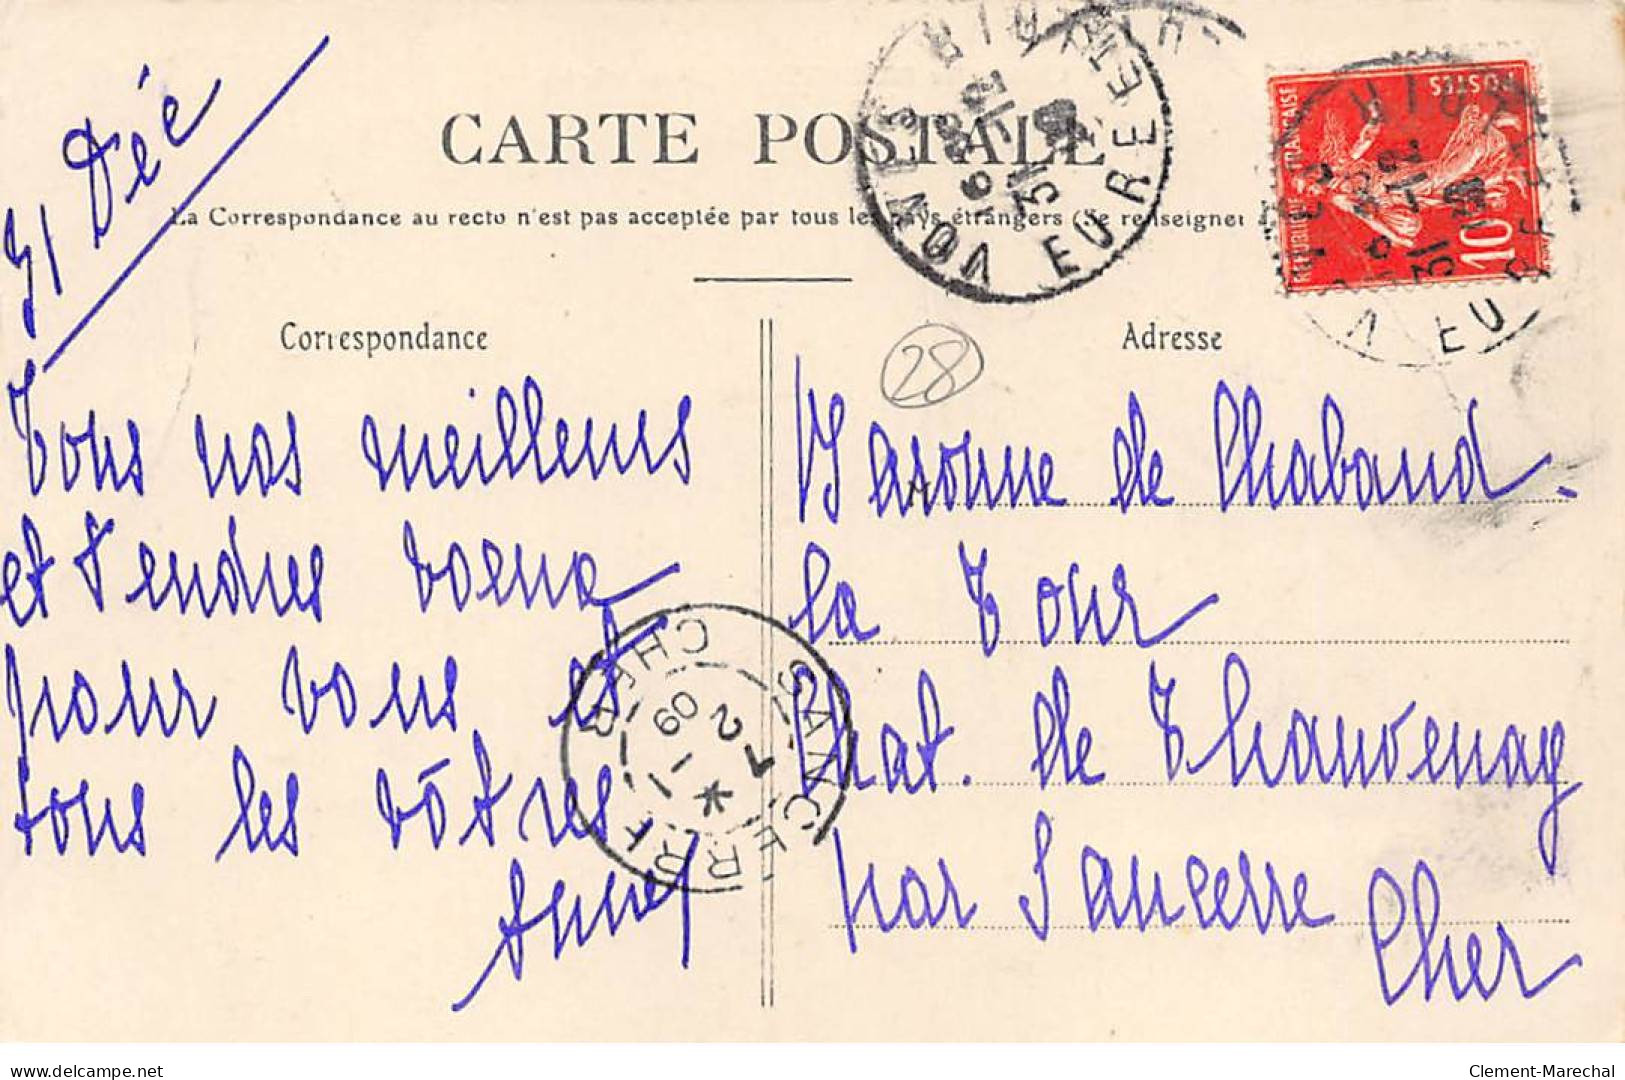 31 Déc
CARTE POSTALE
La Correspondance au recto n'est pas acceptée par tous les pays étrangers (Se renseigner
Correspondance
Tous nos meilleurs
et tendres voeux
pour vous et
tous les vôtres
Adresse
28
Baronne de Chabaud
la Tour
Chat. de Thauvenay
par Sancerre
Cher
VOVES
EURE ET
16 35
31 -12
REPUBLIQUE FRANÇAISE
POSTES
10
SANCERRE
CHER
1 -1
09